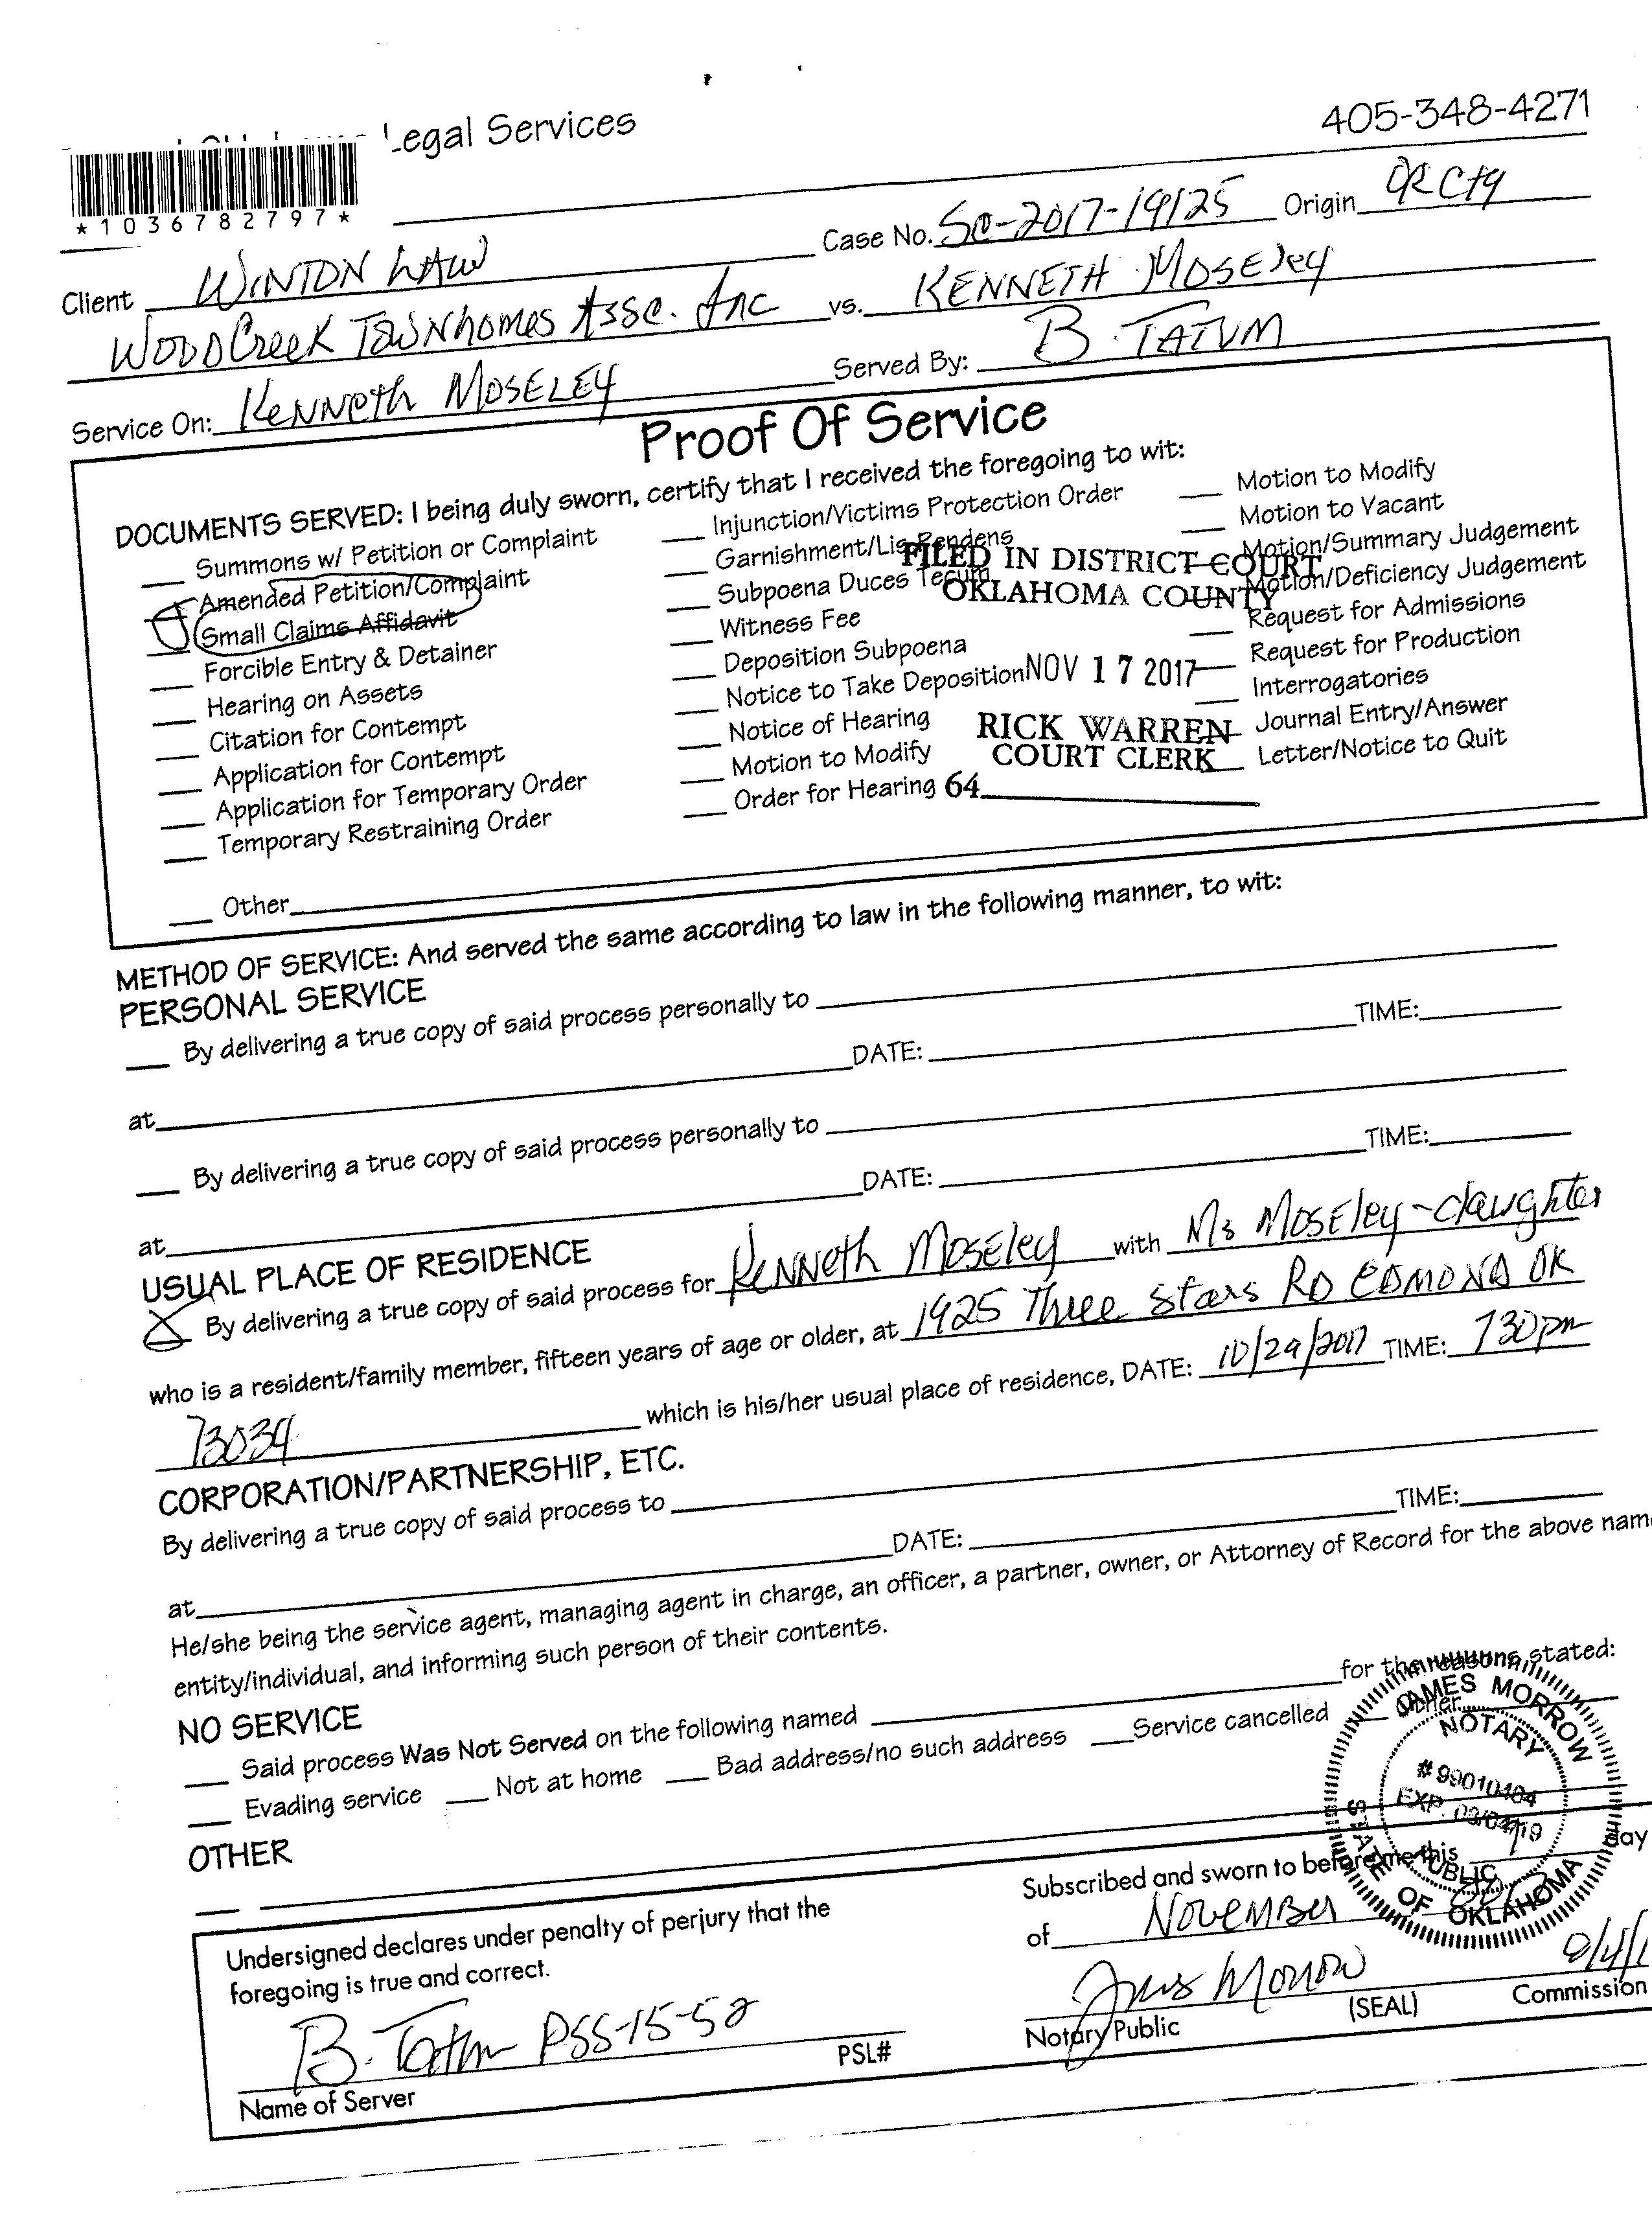 Legal Services 405-348-4271
*1036782797*
Case No. SC-2017-19125 Origin
Client WINTON LAW
WOODCreek TOWNhomes Assc. Inc vs. KENNETH MOSELey
Service On: KeNNeth MOSELEY Served By: B. TATUM
Proof Of Service
DOCUMENTS SERVED: I being duly sworn, certify that I received the foregoing to wit:
Summons w/ Petition or Complaint
Amended Petition/Complaint
Small Claims Affidavit
Forcible Entry & Detainer
Hearing on Assets
Citation for Contempt
Application for Contempt
Application for Temporary Order
Temporary Restraining Order
Injunction/Victims Protection Order
Garnishment/Lis Pendens
Subpoena Duces Tecum
Witness Fee
Deposition Subpoena
Notice to Take Deposition
Notice of Hearing
Motion to Modify
Order for Hearing
Motion to Modify
Motion to Vacant
Motion/Summary Judgement
Motion/Deficiency Judgement
Request for Admissions
Request for Production
Interrogatories
Journal Entry/Answer
Letter/Notice to Quit
FILED IN DISTRICT COURT
OKLAHOMA COUNTY
NOV 17 2017
RICK WARREN
COURT CLERK
64
Other
METHOD OF SERVICE: And served the same according to law in the following manner, to wit:
PERSONAL SERVICE
By delivering a true copy of said process personally to
at DATE: TIME:
By delivering a true copy of said process personally to
at DATE: TIME:
USUAL PLACE OF RESIDENCE
X By delivering a true copy of said process for KeNNeth MOSEley with Ms MOSEley-daughter
who is a resident/family member, fifteen years of age or older, at 1925 Three Stars RD EDMOND OK
73034 which is his/her usual place of residence, DATE: 10/29/2017 TIME: 730pm
CORPORATION/PARTNERSHIP, ETC.
By delivering a true copy of said process to
at DATE: TIME:
He/she being the service agent, managing agent in charge, an officer, a partner, owner, or Attorney of Record for the above nam
entity/individual, and informing such person of their contents.
NO SERVICE
Said process Was Not Served on the following named for the reasons stated:
Evading service Not at home Bad address/no such address Service cancelled Other
OTHER
Undersigned declares under penalty of perjury that the
foregoing is true and correct.
B. Tatum PSS-15-50
Name of Server PSL#
Subscribed and sworn to before me this day
of November
James Morrow
Notary Public (SEAL) Commission
JAMES MORROW
NOTARY
# 99010404
EXP.
PUBLIC
STATE OF OKLAHOMA